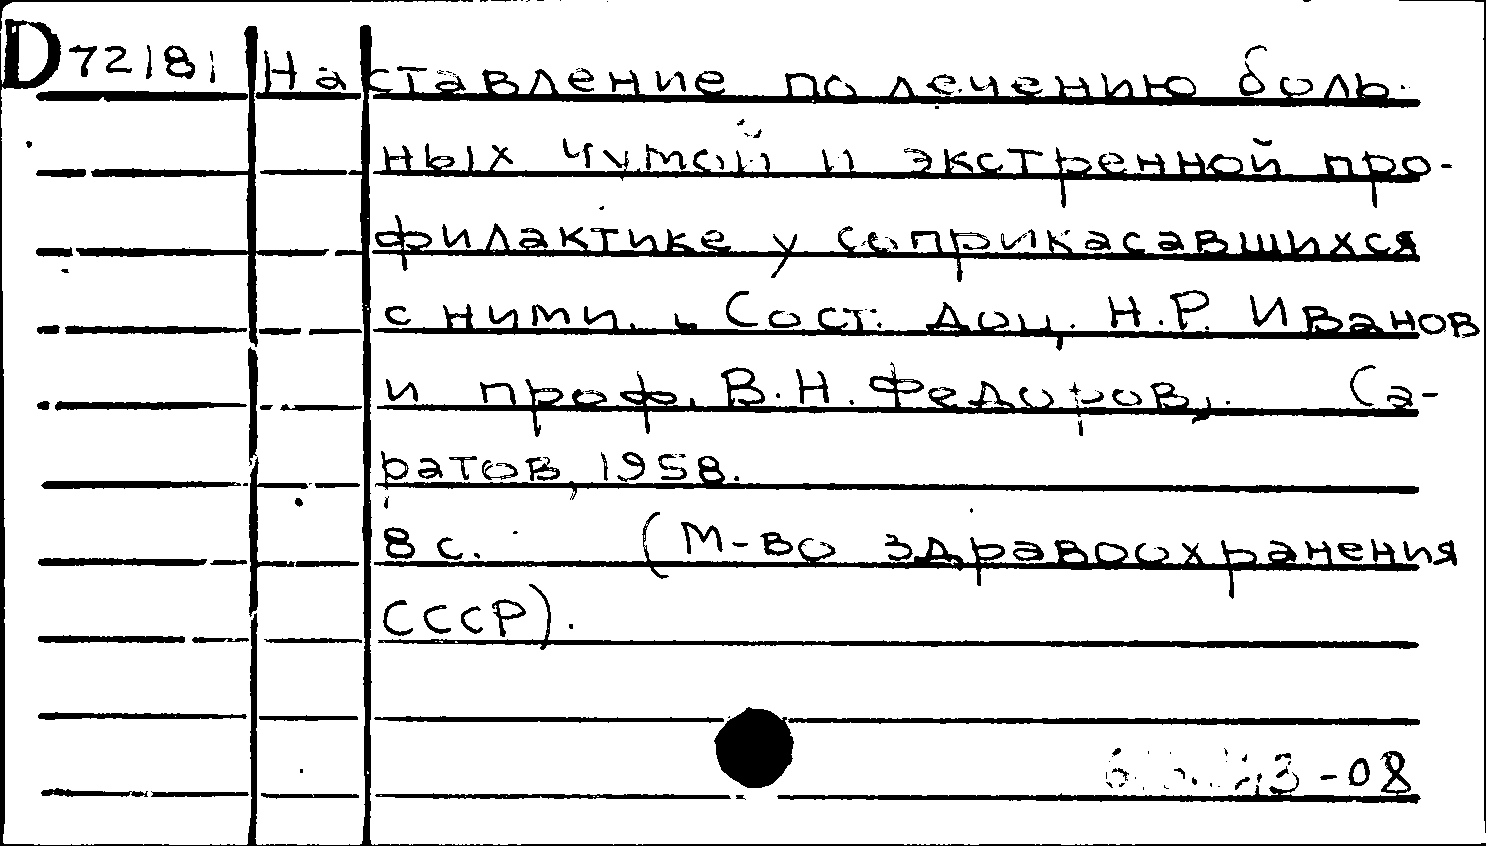 D 72181 Наставление по лечению боль-
ных чумой и экстренной про-
филактике у соприкасавшихся
с ними. Сост. доц. Н.Р. Иванов
и проф. В.Н. Федоров. Са-
ратов, 1958.
8 с. (М-во здравоохранения
СССР).